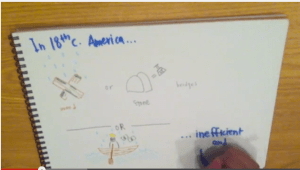 In 18th c. America...
wood or stone bridges
OR
... inefficient
and